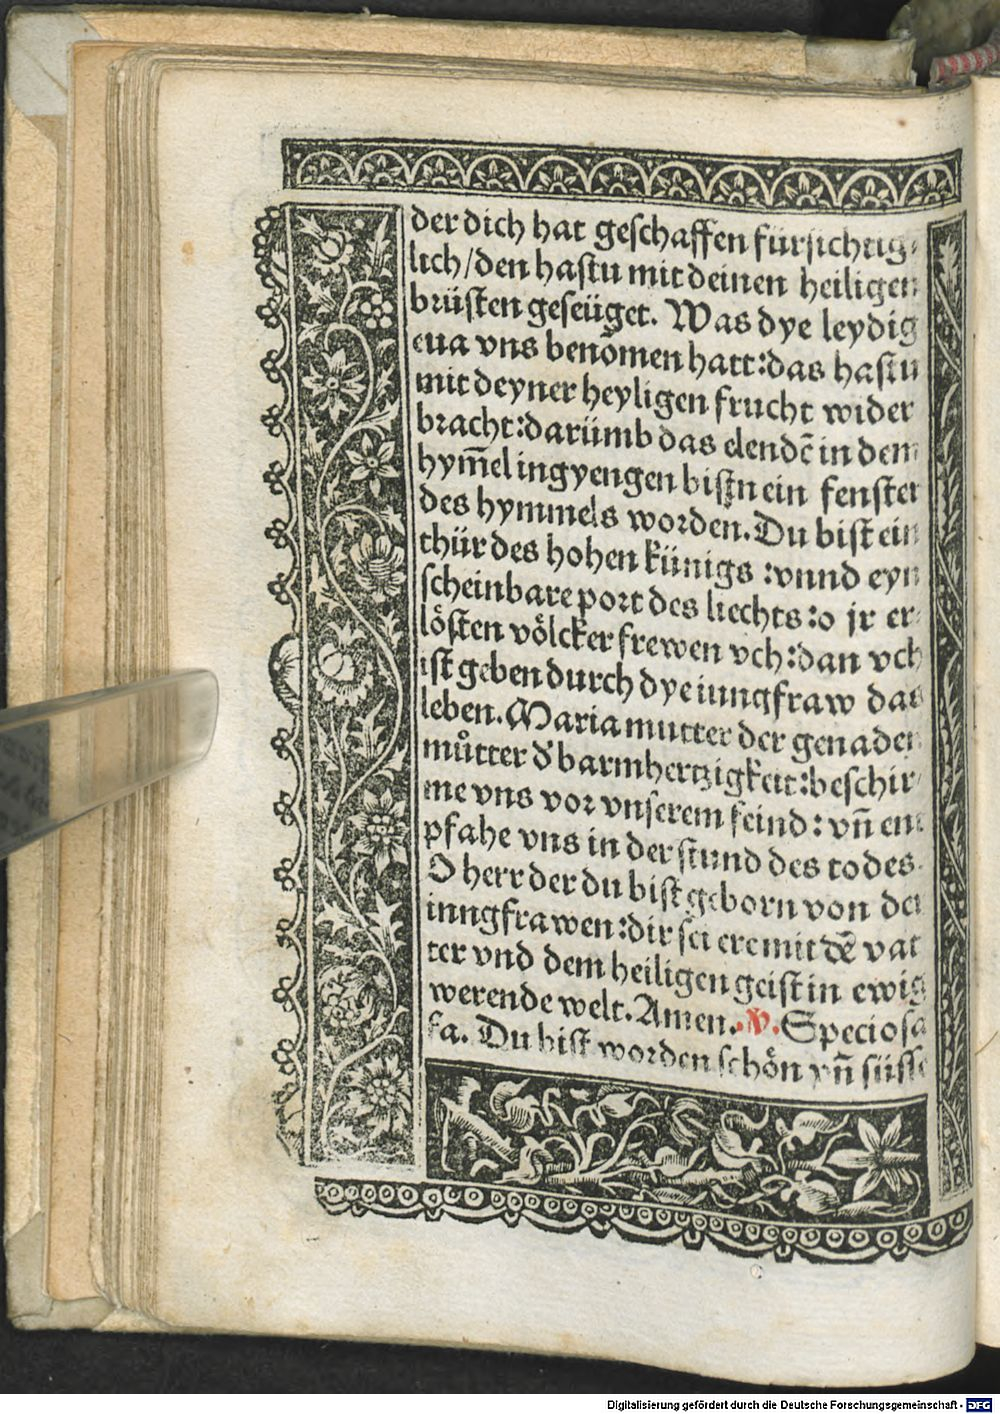 der dich hat geschaffen fürsichtig⸗
lich/den hastu mit deinen heiligen
brüsten geseüget. Was dye leydig
eua vns benömen hatt:das hastu
mit deyner heyligen frucht wider
bracht:darümb das elendē in dem
hym̄el ingyengen bistu ein fenster
des hymmels worden. Du bist ein
thür des hohen künigs :vnnd eyn
scheinbare port des liechts:o jr er⸗
lösten völcker frewen vch:dan vch
ist geben durch dye iungfraw das
leben. Maria mutter der genaden
můtter dʼ barmhertzigkeit:beschir⸗
me vns vor vnserem feind: vn̄ ent
pfahe vns in der stund des todes.
O herr der du bist geborn von der
iungfrawen:dir sei ere mit dē vat
ter vnd dem heiligen geist in ewig
werende welt. Amen. V. Speciosa
fa. Du bist worden schön vn̄ süsse
Digitalisierung gefördert durch die Deutsche Forschungsgemeinschaft - DFG